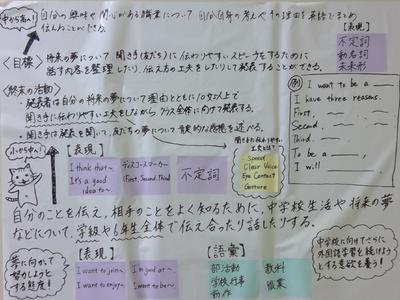 中から高へ!
自分の興味や関心がある職業について自分自身の考えやその理由を英語でまとめ
伝えあうことができる。
【表現】
不定詞
動名詞
未来形
<目標>
将来の夢について聞き手(友だち)に伝わりやすいスピーチをするために
話す内容を整理したり、伝え方の工夫をしたりして発表することができる。
<終末の活動>
・発表者は自分の将来の夢について理由とともに10文以上で
聞き手に伝わりやすい工夫をしながら、クラス全体に向けて発表する。
・聞き手は発表を聞いて、友だちの夢について肯定的な感想を述べる。
例
I want to be a
I have three reasons.
First,
Second,
Third.
To be a
I will
小から中へ!
【表現】
I think that~
It's a good idea to~
ディスコースマーカー
(First, Second, Third)
不定詞
聞き手に伝わりやすい
工夫とは?
Speed
Clear Voice
Eye Contact
Gesture
自分のことを伝え、相手のことをよく知るために、中学校生活や将来の夢
などについて、学級や6年生全体で伝え合ったり話したりする。
夢に向けて
努力しようと
する態度!
【表現】
I want to join~
I want to enjoy~
I'm good at~
I want to be~
【語彙】
部活動
学校行事
動作
教科
職業
中学校に向けてさらに
外国語学習を続けよう
とする意欲を養う!